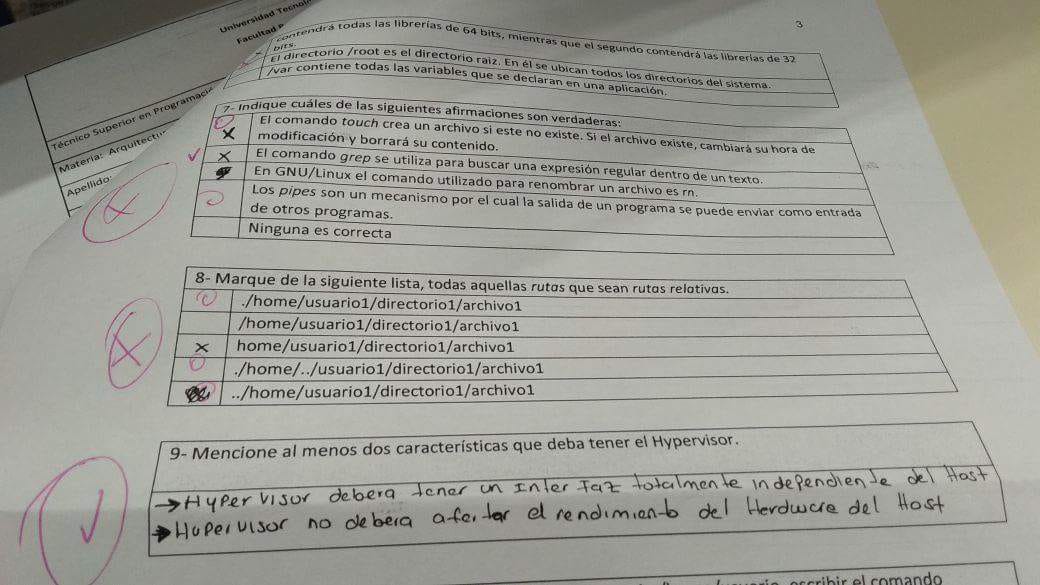 3
Universidad
Facultad
contendrá todas las librerías de 64 bits, mientras que el segundo contendrá las librerías de 32
bits.
El directorio /root es el directorio raiz. En él se ubican todos los directorios del sistema.
/var contiene todas las variables que se declaran en una aplicación.
Técnico Superior en
Materia:
Apellido:
7- Indique cuáles de las siguientes afirmaciones son verdaderas:
El comando touch crea un archivo si este no existe. Si el archivo existe, cambiará su hora de
X modificación y borrará su contenido.
X El comando grep se utiliza para buscar una expresión regular dentro de un texto.
En GNU/Linux el comando utilizado para renombrar un archivo es rn.
Los pipes son un mecanismo por el cual la salida de un programa se puede enviar como entrada
de otros programas.
Ninguna es correcta
8- Marque de la siguiente lista, todas aquellas rutas que sean rutas relativas.
./home/usuario1/directorio1/archivo1
/home/usuario1/directorio1/archivo1
X home/usuario1/directorio1/archivo1
./home/../usuario1/directorio1/archivo1
../home/usuario1/directorio1/archivo1
9- Mencione al menos dos características que deba tener el Hypervisor.
→Hypervisor debera tener un Interfaz totalmente independiente del Host
→Hupervisor no debera afectar el rendimiento del Herdwcre del Host
escribir el comando